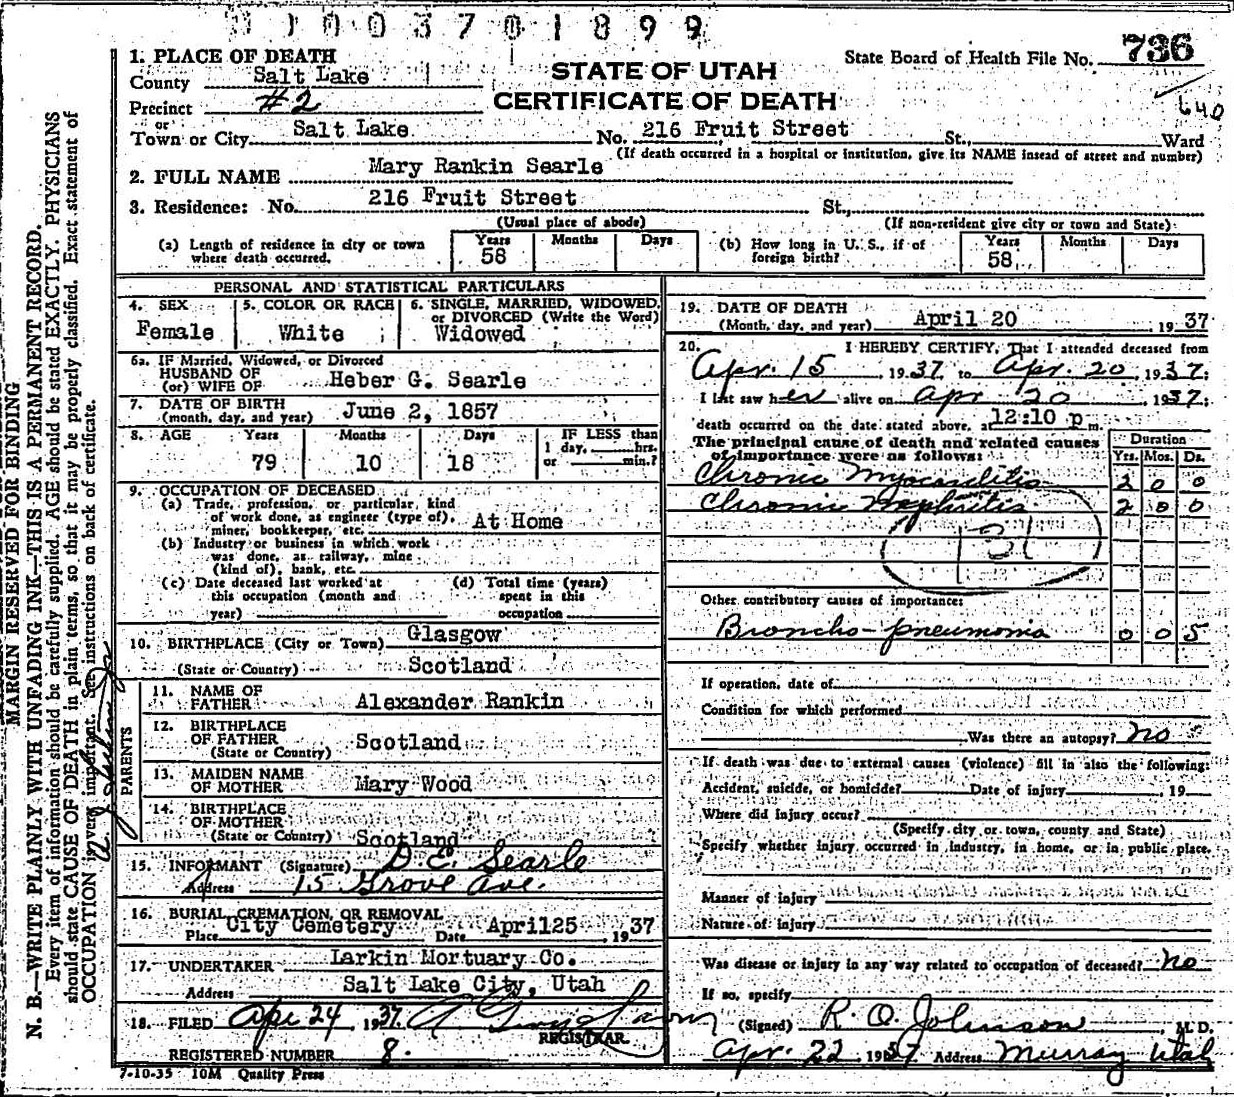 1003701899
1. PLACE OF DEATH
County Salt Lake
Precinct #2
or
Town or City Salt Lake No. 216 Fruit Street St., Ward
(If death occurred in a hospital or institution, give its NAME insead of street and number)
STATE OF UTAH
CERTIFICATE OF DEATH
State Board of Health File No. 736
640
2. FULL NAME Mary Rankin Searle
3. Residence: No. 216 Fruit Street St.,
(Usual place of abode) (If non-resident give city or town and State)
(a) Length of residence in city or town where death occurred. Years 58 Months Days
(b) How long in U. S., if of foreign birth? Years 58 Months Days
PERSONAL AND STATISTICAL PARTICULARS
4. SEX Female
5. COLOR OR RACE White
6. SINGLE, MARRIED, WIDOWED, or DIVORCED (Write the Word) Widowed
6a. IF Married, Widowed, or Divorced
HUSBAND OF
(or) WIFE OF Heber G. Searle
7. DATE OF BIRTH
(month, day, and year) June 2, 1857
8. AGE Years 79 Months 10 Days 18 IF LESS than 1 day, hrs. or min.?
9. OCCUPATION OF DECEASED
(a) Trade, profession, or particular kind
of work done, as engineer (type of),
miner, bookkeeper, etc. At Home
(b) Industry or business in which work
was done, as railway, mine
(kind of), bank, etc.
(c) Date deceased last worked at this occupation (month and year)
(d) Total time (years) spent in this occupation
10. BIRTHPLACE (City or Town) Glasgow
(State or Country) Scotland
PARENTS
11. NAME OF FATHER Alexander Rankin
12. BIRTHPLACE OF FATHER
(State or Country) Scotland
13. MAIDEN NAME OF MOTHER Mary Wood
14. BIRTHPLACE OF MOTHER
(State or Country) Scotland
15. INFORMANT (Signature) D. E. Searle
Address 15 Grove Ave.
16. BURIAL, CREMATION, OR REMOVAL
Place City Cemetery Date April 25, 1937
17. UNDERTAKER Larkin Mortuary Co.
Address Salt Lake City, Utah
18. FILED Apr 24 1937
REGISTRAR.
REGISTERED NUMBER 8.
7-10-35 10M Quality Press
19. DATE OF DEATH
(Month, day, and year) April 20 1937
20. I HEREBY CERTIFY, That I attended deceased from
Apr. 15 1937, to Apr. 20, 1937:
I last saw her alive on Apr 20 1937:
death occurred on the date stated above, at 12:10 p m.
The principal cause of death and related causes
of importance were as follows:
Duration
Yrs. Mos. Ds.
Chronic Myocarditis 2 0 0
Chronic Nephritis 2 0 0
131
Other contributory causes of importance:
Broncho-pneumonia 0 0 5
If operation, date of
Condition for which performed
Was there an autopsy? No
If death was due to external causes (violence) fill in also the following:
Accident, suicide, or homicide? Date of injury 19
Where did injury occur?
(Specify city or town, county and State)
Specify whether injury occurred in industry, in home, or in public place.
Manner of injury
Nature of injury
Was disease or injury in any way related to occupation of deceased? No
If so, specify
(Signed) R. O. Johnson, M. D.
Apr. 22, 1937 Address Murray Utah
MARGIN RESERVED FOR BINDING
N. B.—WRITE PLAINLY WITH UNFADING INK—THIS IS A PERMANENT RECORD.
Every item of information should be carefully supplied. AGE should be stated EXACTLY. PHYSICIANS
should state CAUSE OF DEATH in plain terms, so that it may be properly classified. Exact statement of
OCCUPATION is very important. See instructions on back of certificate.